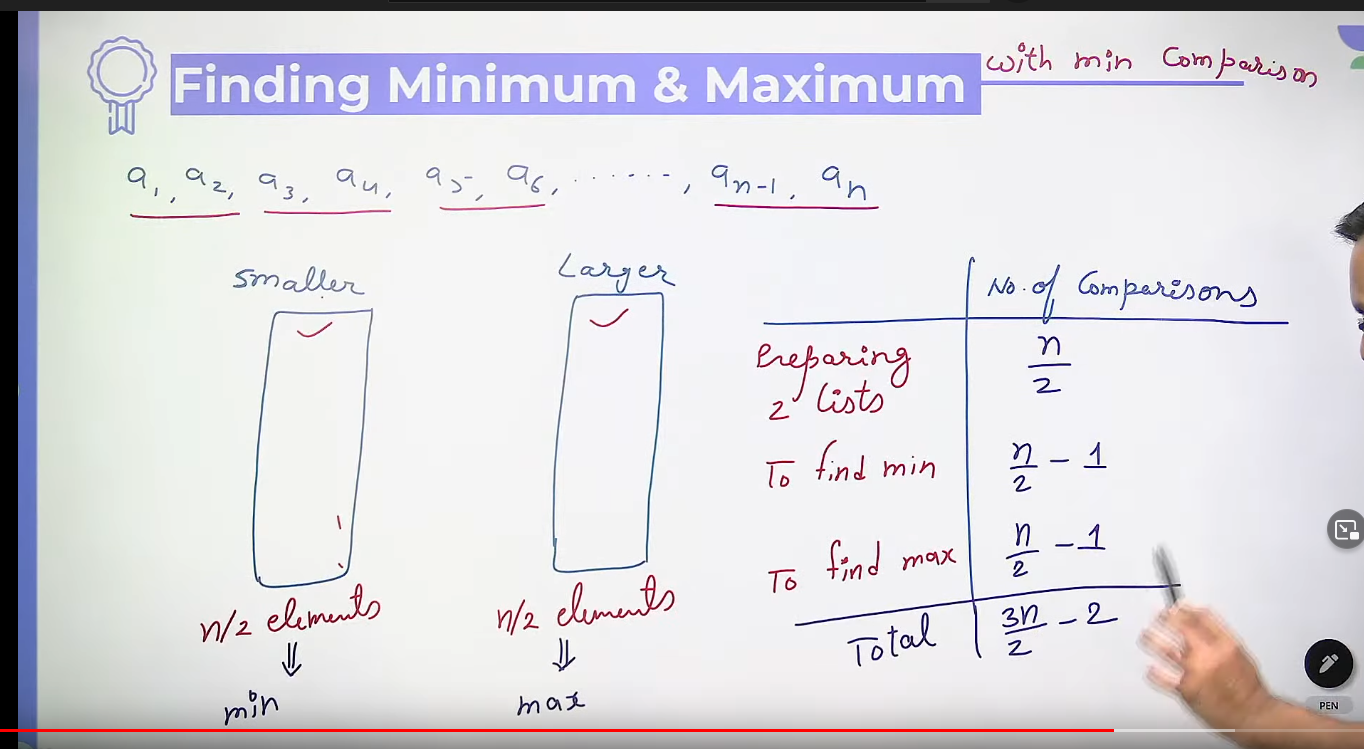 Finding Minimum & Maximum with min Comparison
a1, a2, a3, a4, a5, a6, ......., an-1, an
Smaller
Larger
n/2 elements
n/2 elements
⇓
⇓
min
max
No. of Comparisons
Preparing 2 lists
n/2
To find min
n/2 - 1
To find max
n/2 - 1
Total
3n/2 - 2
PEN